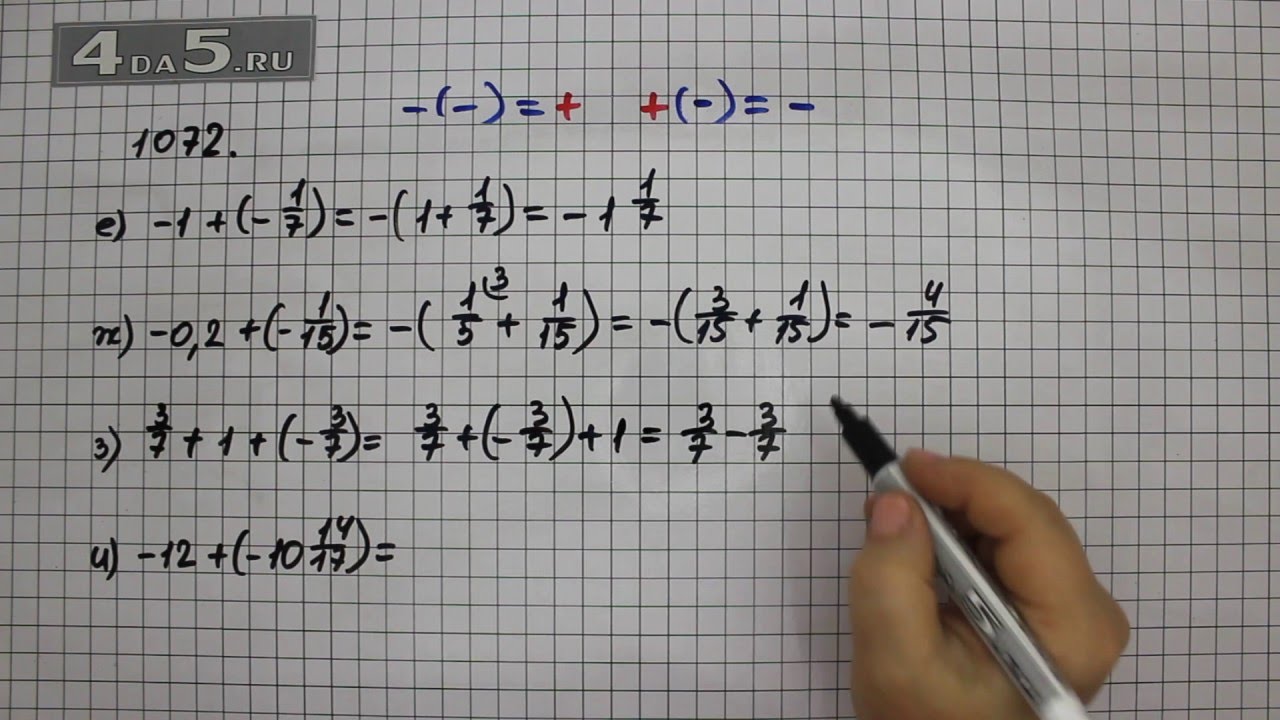 4DA5.RU
-(-) = + +(-) = -
1072.
е) -1 + (- 1/7) = -(1 + 1/7) = - 1 1/7
ж) -0,2 + (- 1/15) = -( 1/5 ⁽³ + 1/15 ) = -(3/15 + 1/15) = - 4/15
з) 3/7 + 1 + (- 3/7) = 3/7 + (- 3/7) + 1 = 3/7 - 3/7
и) -12 + (-10 14/17) =